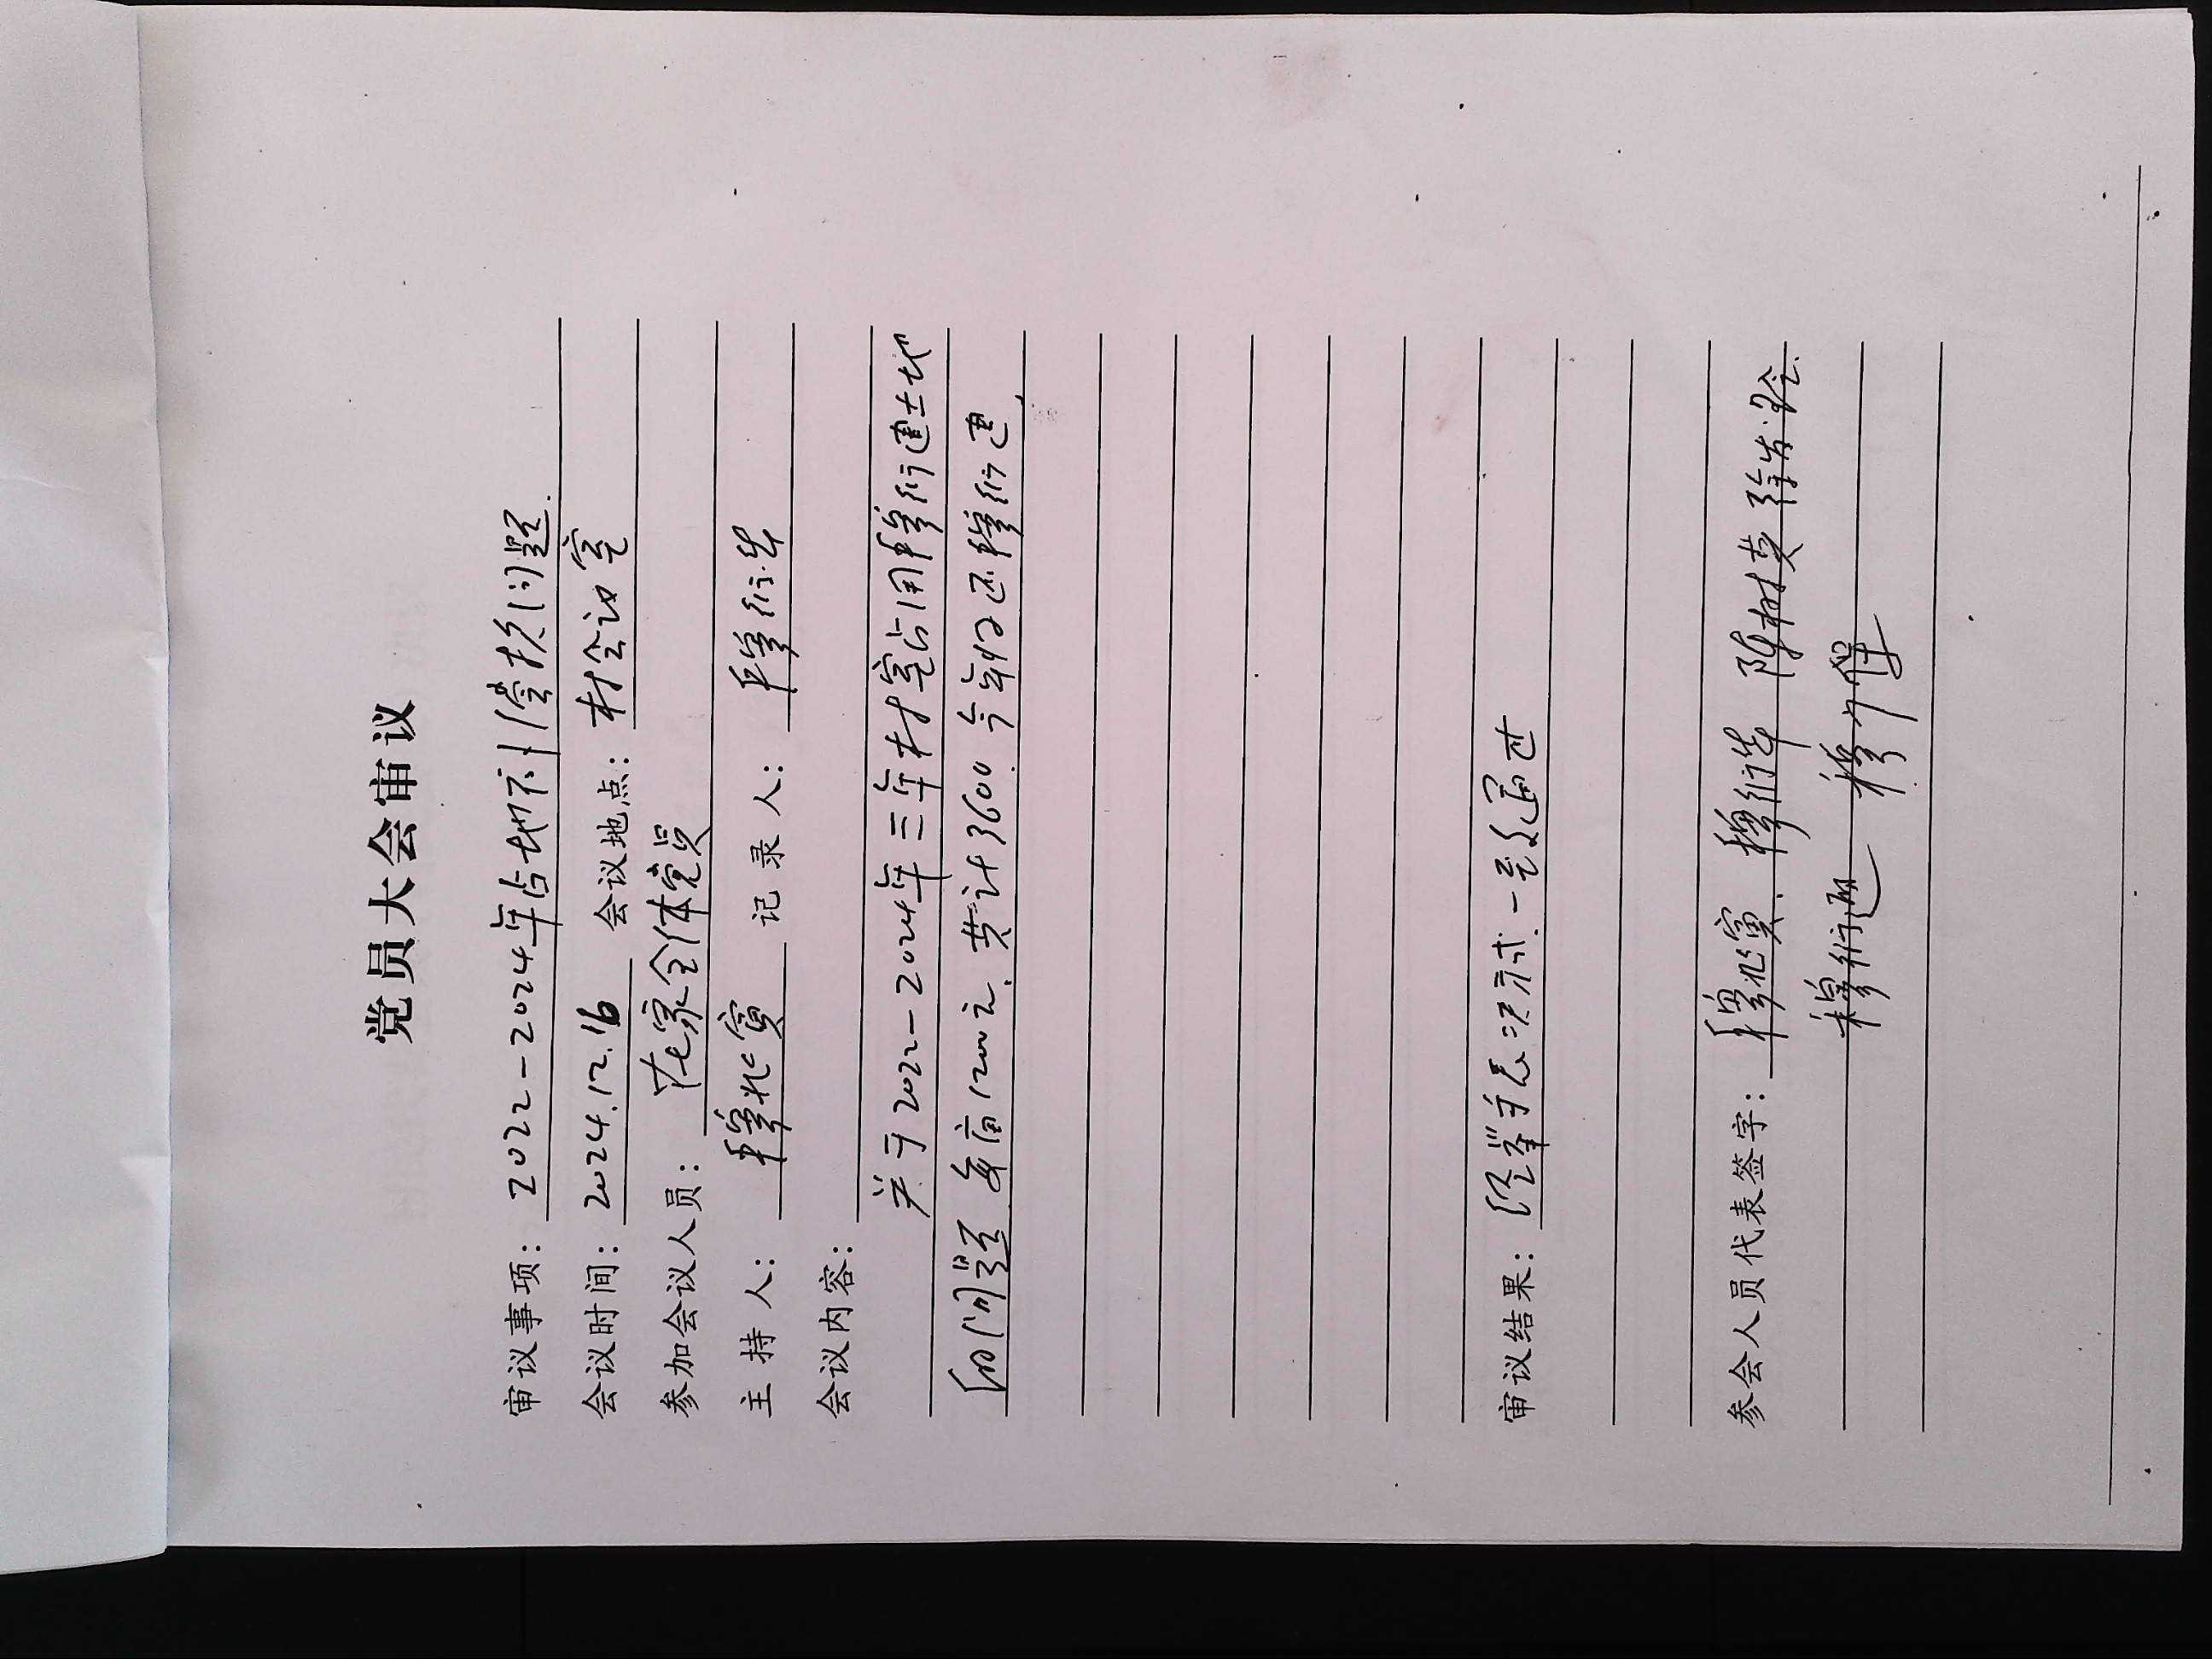 党员大会审议
审议事项：2022-2024年占地补偿款问题.
会议时间：2024.12.16 会议地点：村会议室
参加会议人员：在家全体党员
主持人：穆兆宾 记录人：穆衍华
会议内容：
关于2022-2024年三年村室占用穆衍 土地
的问题 每亩1200元. 共计3600. 今年 还穆衍
审议结果：经举手表决 一致通过
参会人员代表签字：穆兆宾、穆衍华 陈树英
穆衍 穆